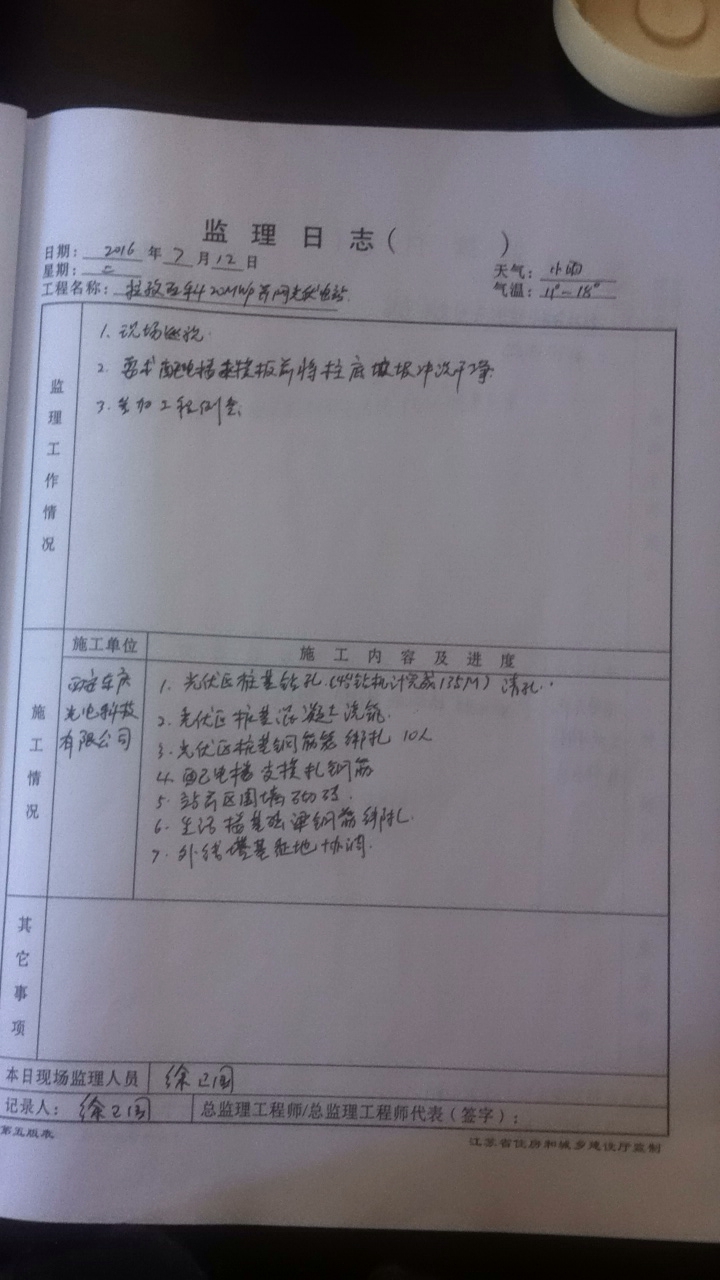 监理日志（ ）
日期：2016年7月12日
星期：二
天气：小雨
工程名称：拉孜 20MWp并网光伏电站
气温：11°-18°
监理工作情况
1. 现场巡视.
2. 要求配电楼 板前将柱底 冲洗干净.
3. 参加工程例会.
施工单位
施工内容及进度
施工情况
西安 光电科技有限公司
1. 光伏区桩基钻孔（4台钻机计完成135M）清孔.
2. 光伏区桩基混凝土浇筑.
3. 光伏区桩基钢筋笼绑扎 10人
4. 配电楼支模扎钢筋
5. 站前区围墙砌砖.
6. 生活楼基础梁钢筋绑扎.
7. 外线塔基征地协调.
其它事项
本日现场监理人员 徐卫国
记录人：徐卫国
总监理工程师/总监理工程师代表（签字）：
第五版表
江苏省住房和城乡建设厅监制